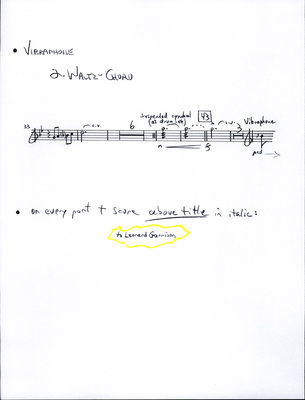 • VIBRAPHONE
2. WALTZ-CHORD
Suspended cymbal 43
(as drum set) Vibraphone
33 6 3
n
ped
• on every part + score above title in italic:
to Leonard Garrison